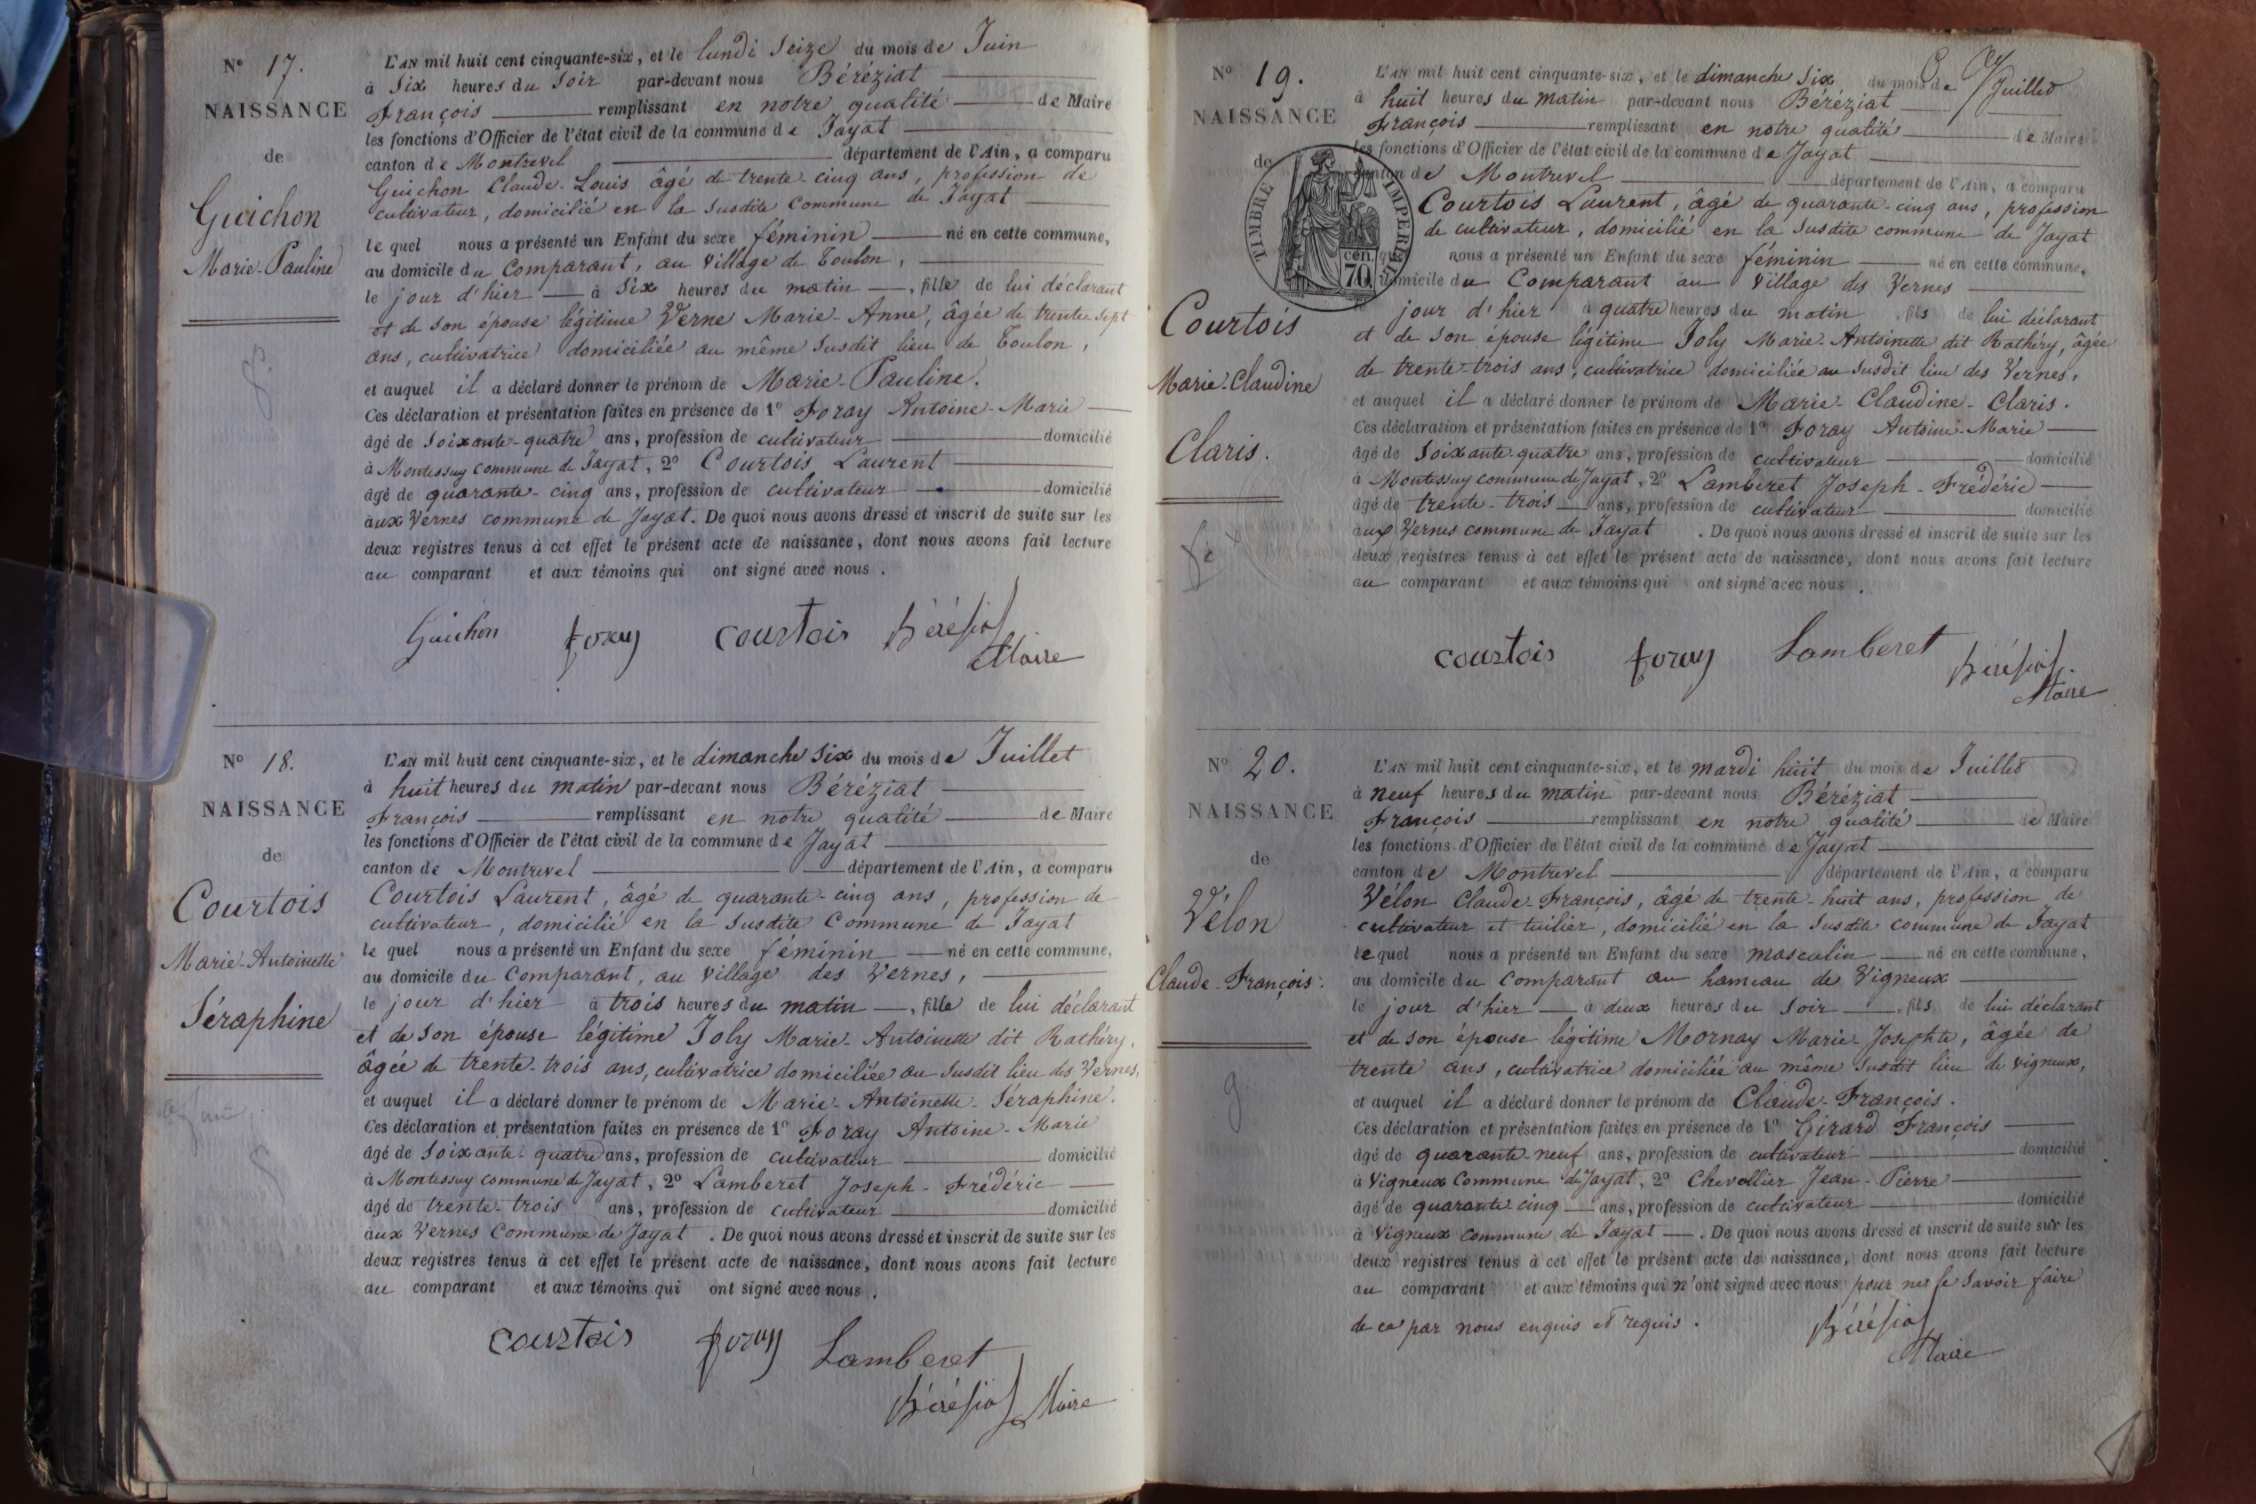 N° 17.
NAISSANCE
de
Guichon
Marie-Pauline
L'AN mil huit cent cinquante-six, et le lundi seize du mois de Juin
à six heures du soir par-devant nous Béréziat
François remplissant en notre qualité de Maire
les fonctions d'Officier de l'état civil de la commune de Jayat
canton de Montrevel département de l'Ain, a comparu
Guichon Claude-Louis âgé de trente-cinq ans, profession de
cultivateur, domicilié en la susdite commune de Jayat
le quel nous a présenté un Enfant du sexe féminin né en cette commune,
au domicile du comparant, au village de Toulon,
le jour d'hier à six heures du matin, fille de lui déclarant
et de son épouse légitime Verne Marie-Anne, âgée de trente-sept
ans, cultivatrice domiciliée au même susdit lieu de Toulon,
et auquel il a déclaré donner le prénom de Marie-Pauline.
Ces déclaration et présentation faites en présence de 1° Foray Antoine-Marie
âgé de soixante-quatre ans, profession de cultivateur domicilié
à Montessuy commune de Jayat, 2° Courtois Laurent
âgé de quarante-cinq ans, profession de cultivateur domicilié
aux Vernes commune de Jayat. De quoi nous avons dressé et inscrit de suite sur les
deux registres tenus à cet effet le présent acte de naissance, dont nous avons fait lecture
au comparant et aux témoins qui ont signé avec nous.
Guichon foray courtois Béréziat
Maire
N° 18.
NAISSANCE
de
Courtois
Marie-Antoinette
Séraphine
L'AN mil huit cent cinquante-six, et le dimanche six du mois de Juillet
à huit heures du matin par-devant nous Béréziat
François remplissant en notre qualité de Maire
les fonctions d'Officier de l'état civil de la commune de Jayat
canton de Montrevel département de l'Ain, a comparu
Courtois Laurent, âgé de quarante-cinq ans, profession de
cultivateur, domicilié en la susdite commune de Jayat
le quel nous a présenté un Enfant du sexe féminin né en cette commune,
au domicile du comparant, au village des Vernes,
le jour d'hier à trois heures du matin, fille de lui déclarant
et de son épouse légitime Joly Marie-Antoinette dit Rathéry,
âgée de trente-trois ans, cultivatrice domiciliée au susdit lieu des Vernes,
et auquel il a déclaré donner le prénom de Marie-Antoinette-Séraphine.
Ces déclaration et présentation faites en présence de 1° Foray Antoine-Marie
âgé de soixante-quatre ans, profession de cultivateur domicilié
à Montessuy commune de Jayat, 2° Lamberet Joseph-Frédéric
âgé de trente-trois ans, profession de cultivateur domicilié
aux Vernes commune de Jayat. De quoi nous avons dressé et inscrit de suite sur les
deux registres tenus à cet effet le présent acte de naissance, dont nous avons fait lecture
au comparant et aux témoins qui ont signé avec nous.
courtois foray Lamberet
Béréziat Maire
N° 19.
NAISSANCE
de
TIMBRE IMPERIAL
70 cen.
Courtois
Marie-Claudine
Claris.
L'AN mil huit cent cinquante-six, et le dimanche six du mois de Juillet
à huit heures du matin par-devant nous Béréziat
François remplissant en notre qualité de Maire
les fonctions d'Officier de l'état civil de la commune de Jayat
canton de Montrevel département de l'Ain, a comparu
Courtois Laurent, âgé de quarante-cinq ans, profession
de cultivateur, domicilié en la susdite commune de Jayat
nous a présenté un Enfant du sexe féminin né en cette commune,
domicile du comparant au village des Vernes
jour d'hier à quatre heures du matin, fils de lui déclarant
et de son épouse légitime Joly Marie-Antoinette dit Rathéry, âgée
de trente-trois ans, cultivatrice domiciliée au susdit lieu des Vernes,
et auquel il a déclaré donner le prénom de Marie-Claudine-Claris.
Ces déclaration et présentation faites en présence de 1° Foray Antoine-Marie
âgé de soixante-quatre ans, profession de cultivateur domicilié
à Montessuy commune de Jayat, 2° Lamberet Joseph-Frédéric
âgé de trente-trois ans, profession de cultivateur domicilié
aux Vernes commune de Jayat. De quoi nous avons dressé et inscrit de suite sur les
deux registres tenus à cet effet le présent acte de naissance, dont nous avons fait lecture
au comparant et aux témoins qui ont signé avec nous.
courtois foray Lamberet Béréziat
Maire
N° 20.
NAISSANCE
de
Vélon
Claude-François.
L'AN mil huit cent cinquante-six, et le mardi huit du mois de Juillet
à neuf heures du matin par-devant nous Béréziat
François remplissant en notre qualité de Maire
les fonctions d'Officier de l'état civil de la commune de Jayat
canton de Montrevel département de l'Ain, a comparu
Vélon Claude-François, âgé de trente-huit ans, profession de
cultivateur et tuilier, domicilié en la susdite commune de Jayat
le quel nous a présenté un Enfant du sexe masculin né en cette commune,
au domicile du comparant au hameau de Vigneux
le jour d'hier à deux heures du soir, fils de lui déclarant
et de son épouse légitime Mornay Marie-Josephte, âgée de
trente ans, cultivatrice domiciliée au même susdit lieu de vigneux,
et auquel il a déclaré donner le prénom de Claude-François.
Ces déclaration et présentation faites en présence de 1° Girard François
âgé de quarante-neuf ans, profession de cultivateur domicilié
à Vigneux commune de Jayat, 2° Chevallier Jean-Pierre
âgé de quarante cinq ans, profession de cultivateur domicilié
à Vigneux commune de Jayat. De quoi nous avons dressé et inscrit de suite sur les
deux registres tenus à cet effet le présent acte de naissance, dont nous avons fait lecture
au comparant et aux témoins qui n'ont signé avec nous pour ne le savoir faire
de ce par nous enquis et requis.
Béréziat
Maire